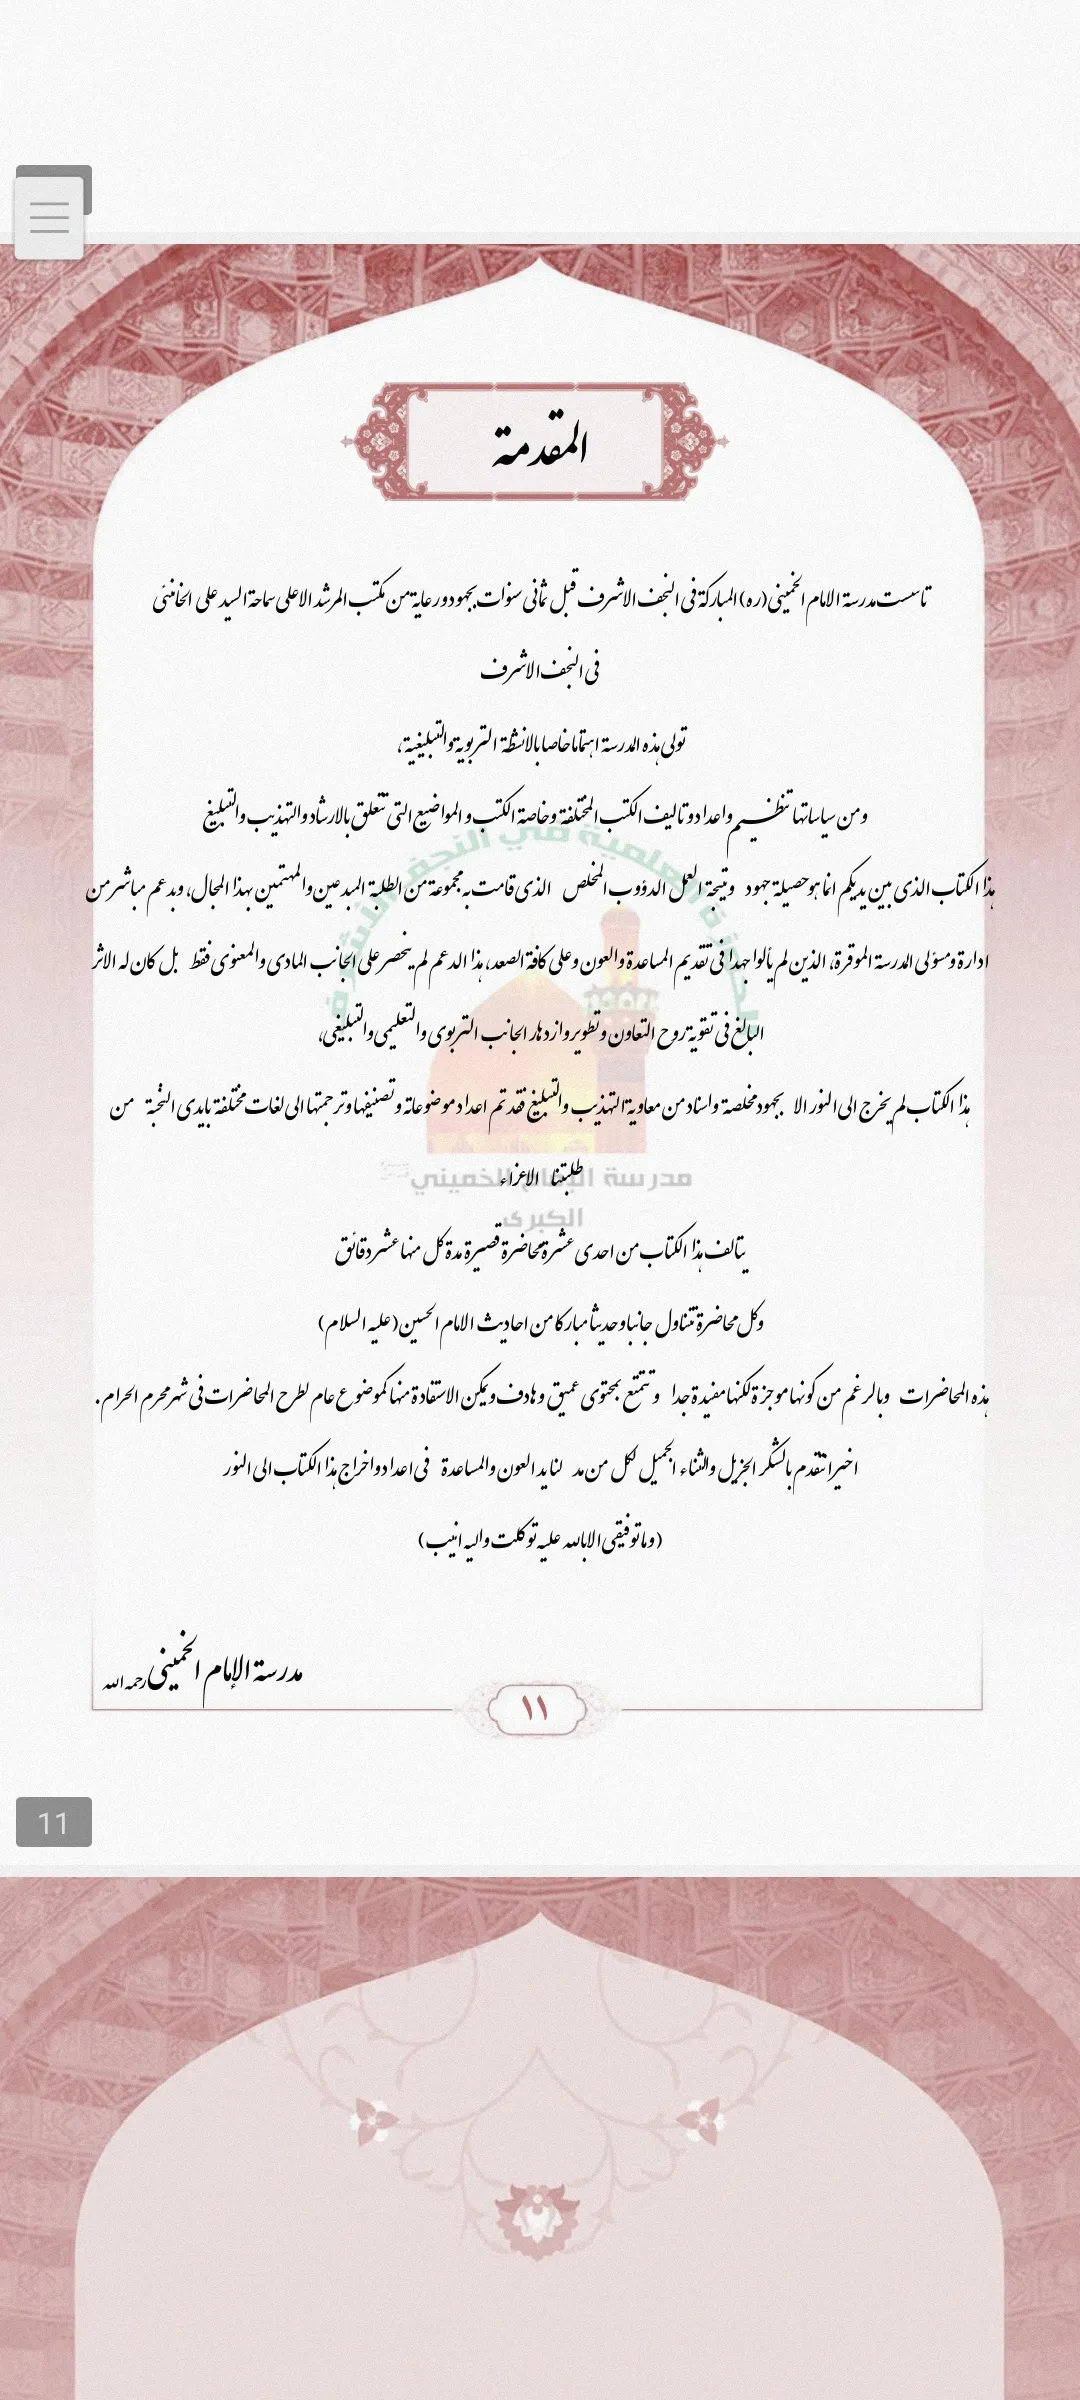 المقدمة
تاسست مدرسة الامام الخمينی (ره) المباركة فی النجف الاشرف قبل ثمانی سنوات بجهود ورعاية من مكتب المرشد الاعلی سماحة السيد علی الخامنئی
فی النجف الاشرف
تولی هذه المدرسة اهتماما خاصا بالانشطة التربوية والتبليغية،
ومن سياساتها تنظيم واعداد و تاليف الكتب المختلفة وخاصة الكتب و المواضيع التی تتعلق بالارشاد والتهذيب والتبليغ
هذا الكتاب الذی بين يديكم انما هو حصيلة جهود ونتيجة العمل الدؤوب المخلص الذی قامت به مجموعة من الطلبة المبدعين والمهتمين بهذا المجال، وبدعم مباشر من
ادارة ومسؤلی المدرسة الموقرة، الذين لم يألوا جهدا فی تقديم المساعدة والعون وعلی كافة الصعد، هذا الدعم لم ينحصر علی الجانب المادی والمعنوی فقط بل كان له الاثر
البالغ فی تقوية روح التعاون وتطوير وازدهار الجانب التربوی والتعليمی والتبليغی،
هذا الكتاب لم يخرج الی النور الا بجهود مخلصة واسناد من معاوية التهذيب والتبليغ فقد تم اعداد موضوعاتة وتصنيفها وترجمتها الی لغات مختلفة بايدی النخبة من
طلبتنا الاعزاء
يتالف هذا الكتاب من احدی عشرة محاضرة قصيرة مدة كل منها عشر دقائق
وكل محاضرة تتناول جانبا وحديثا مباركا من احاديث الامام الحسين (عليه السلام)
هذه المحاضرات وبالرغم من كونها موجزة لكنها مفيدة جدا وتتمتع بمحتوی عميق وهادف ويمكن الاستفادة منها كموضوع عام لطرح المحاضرات فی شهر محرم الحرام.
اخيرا نتقدم بالشكر الجزيل والثناء الجميل لكل من مد لنا يد العون والمساعدة فی اعداد واخراج هذا الكتاب الی النور
(وما توفيقی الا بالله عليه توكلت واليه انيب)
مدرسة الإمام الخمينی رحمه الله
١١
11
مدرسة الإمام الخميني
الكبرى